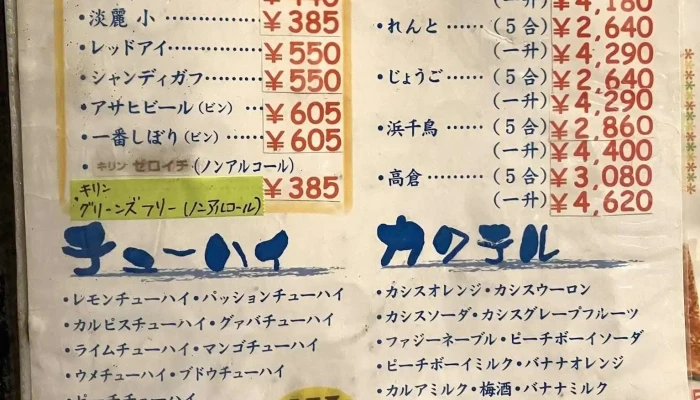 ・淡麗 小 ……………… ¥385
・レッドアイ……………… ¥550
・シャンディガフ………… ¥550
・アサヒビール(ビン) … ¥605
・一番しぼり(ビン)…… ¥605
・キリン ゼロイチ(ノンアルコール)
キリン
グリーンズフリー(ノンアルコール) ¥385
チューハイ
・レモンチューハイ・パッションチューハイ
・カルピスチューハイ・グァバチューハイ
・ライムチューハイ・マンゴチューハイ
・ウメチューハイ・ブドウチューハイ
・ピーチチューハイ
(一升) ¥4,180
・れんと ……(5合) ¥2,640
(一升) ¥4,290
・じょうご……(5合) ¥2,640
(一升) ¥4,290
・浜千鳥 ……(5合) ¥2,860
(一升) ¥4,400
・高倉 ………(5合) ¥3,080
(一升) ¥4,620
カクテル
・カシスオレンジ・カシスウーロン
・カシスソーダ・カシスグレープフルーツ
・ファジーネーブル・ピーチボーイソーダ
・ピーチボーイミルク・バナナオレンジ
・カルアミルク・梅酒・バナナミルク